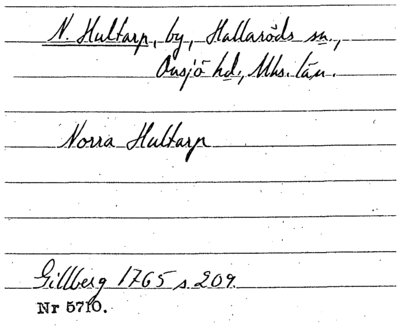 N. Hultarp, by, Hallaröds sn.,
Onsjö hd., Mhs. län.
Norra Hultarp
Gillberg 1765 s 209
Nr 5710.